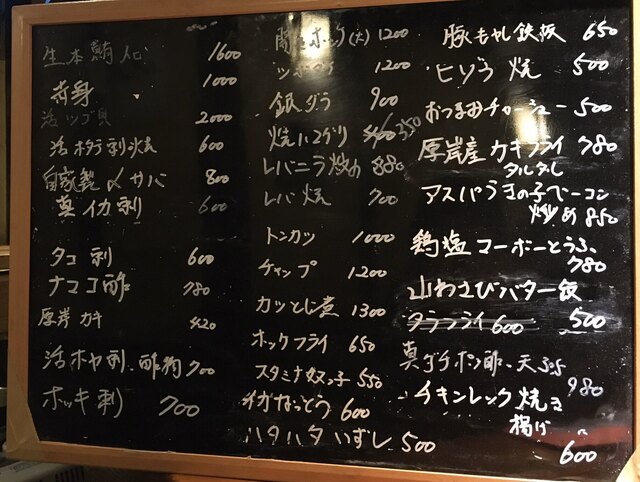 生本鮪 1600
赤身 1000
活ツブ貝 2000
活ホタテ刺 焼 600
自家製〆サバ 800
真イカ刺 600
タコ刺 600
ナマコ酢 780
厚岸カキ 420
活ホヤ刺、酢物 700
ホッキ刺 700
ホッケ(大) 1200
1200
銀ダラ 900
焼ハマグリ 350
レバニラ炒め 880
レバ焼 700
トンカツ 1000
チャップ 1200
カツとじ煮 1300
ホッケフライ 650
スタミナ奴っ子 550
イカなっとう 600
ハタハタいずし 500
豚もやし鉄板 650
ヒゾウ焼 500
おつまみチャーシュー 500
厚岸産カキフライ 780
タルタル
アスパラきの子ベーコン
炒め 850
鶏塩マーボーとうふ
780
山わさびバター飯
500
タラフライ 600
真ダチポン酢、天ぷら
980
チキンレッグ焼き
揚げ
600